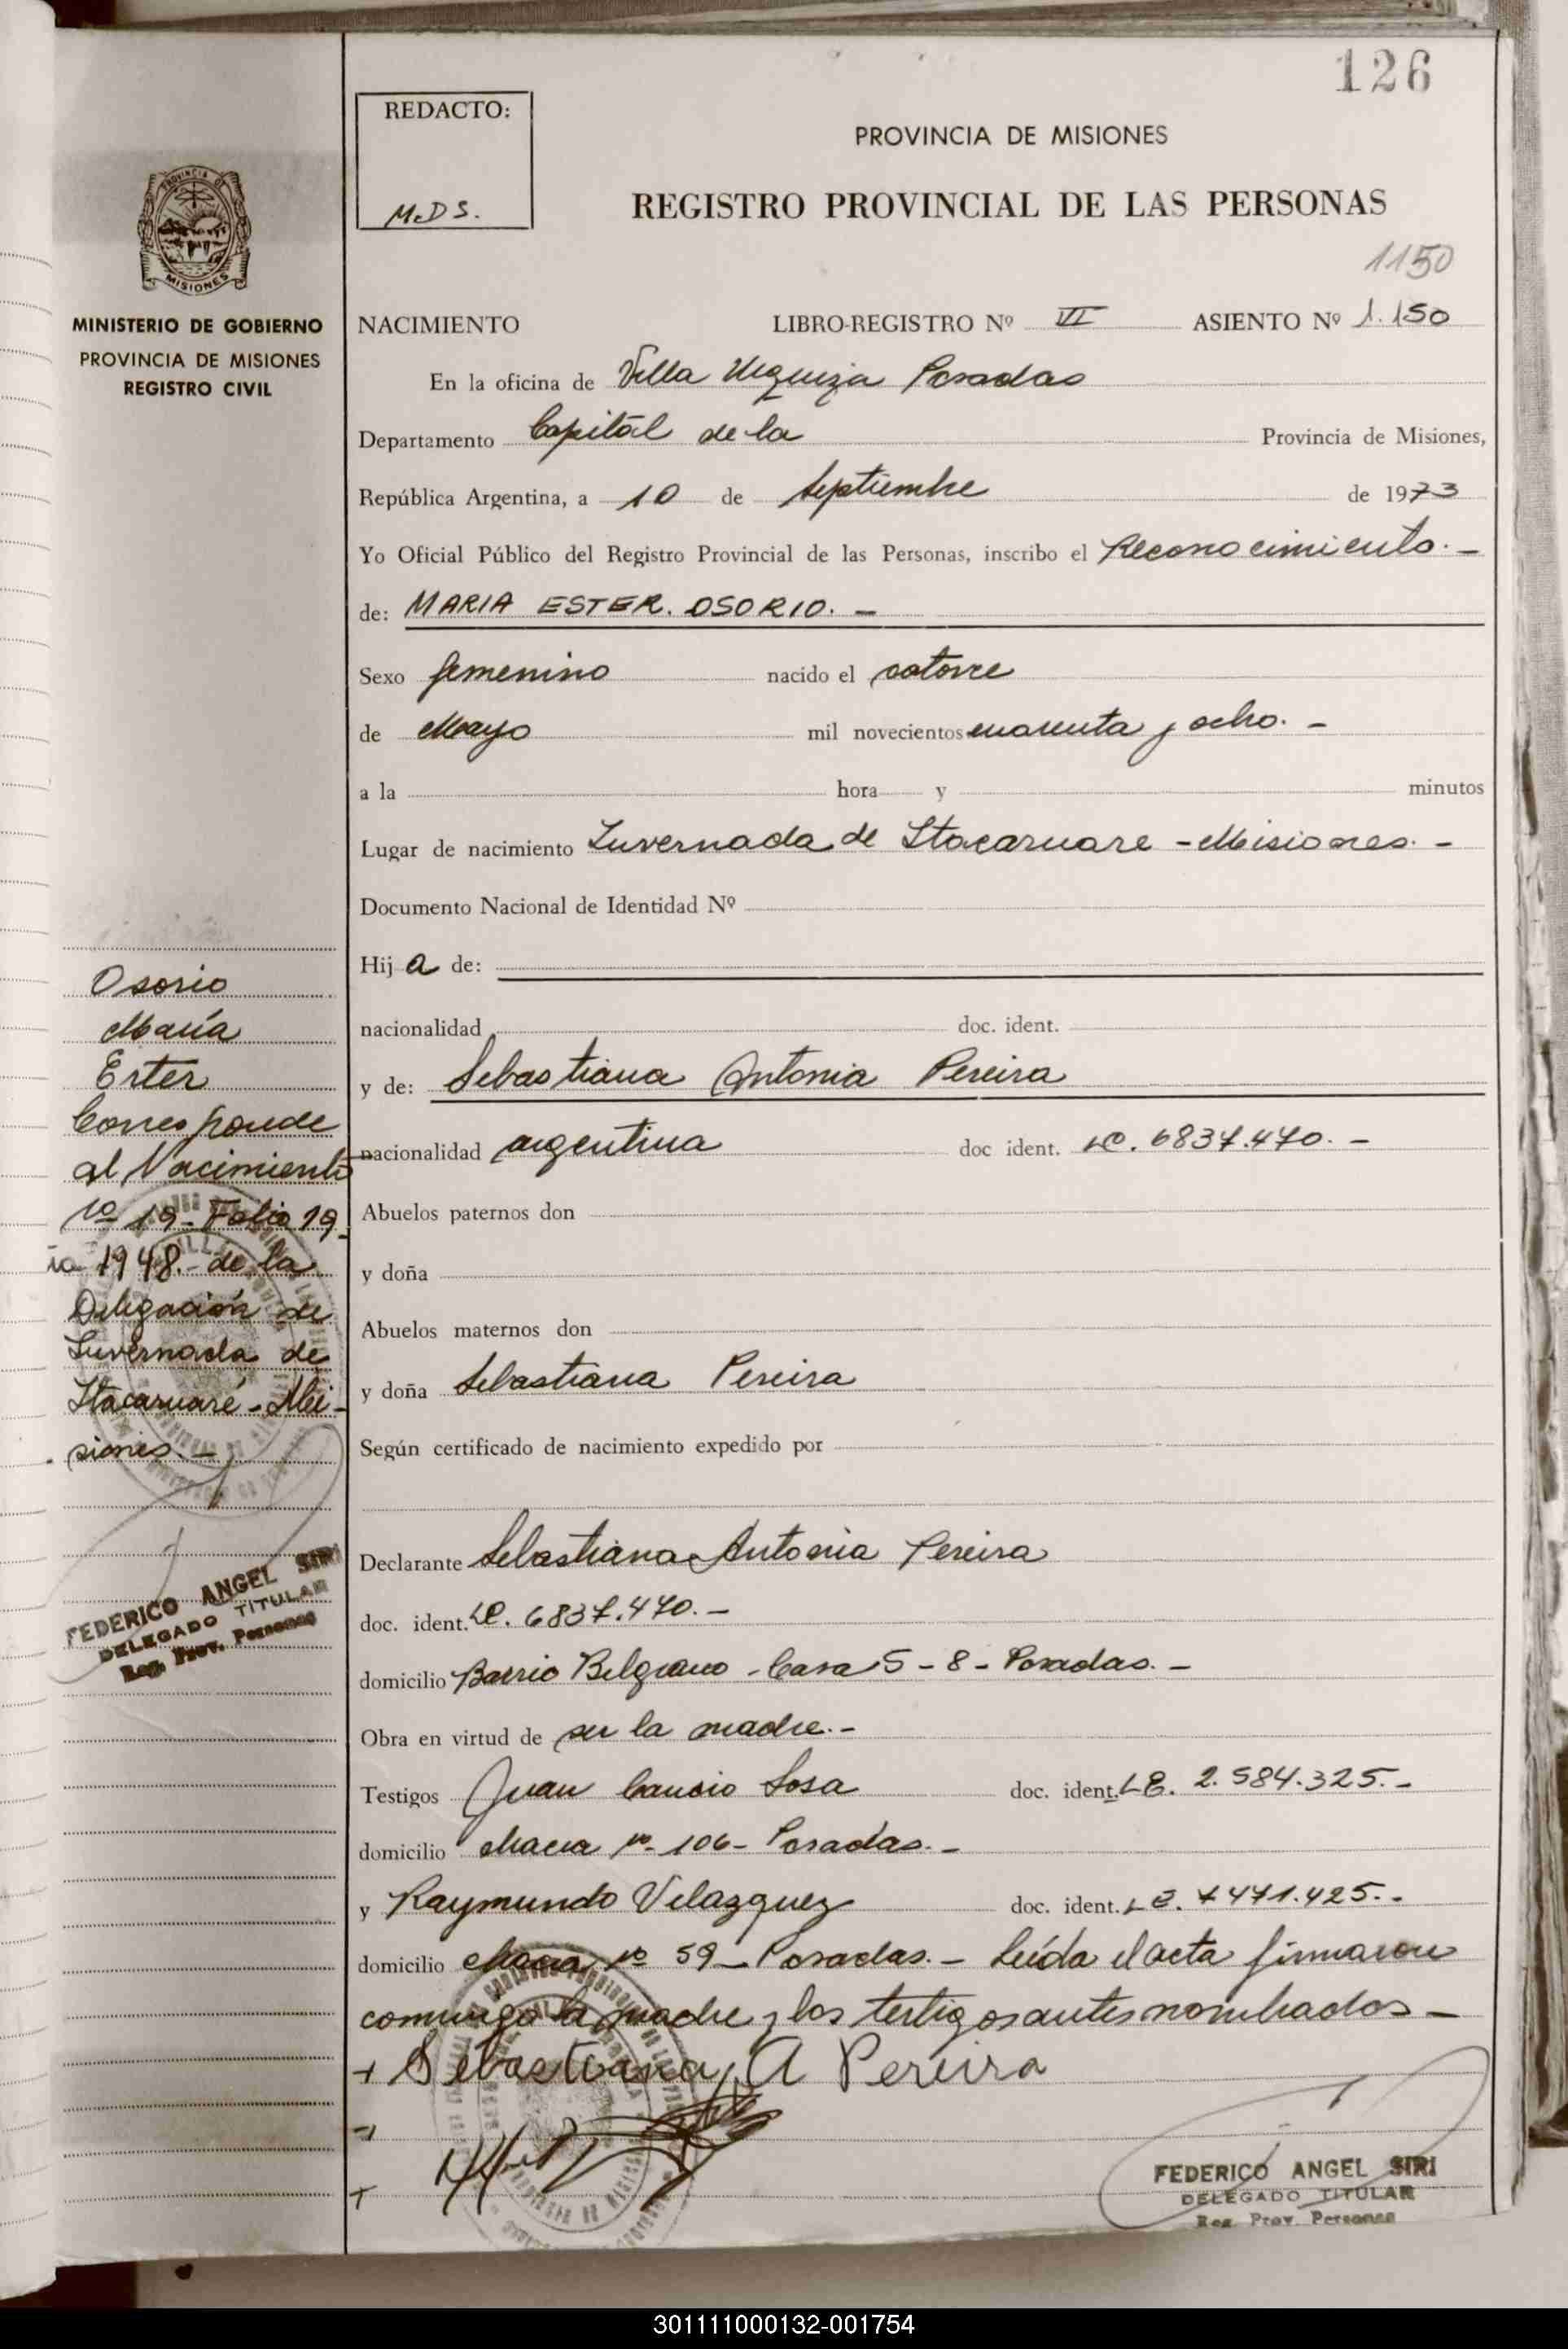 126
REDACTO:
M.D S.
PROVINCIA DE MISIONES
REGISTRO PROVINCIAL DE LAS PERSONAS
1150
PROVINCIA DE
MISIONES
MINISTERIO DE GOBIERNO
PROVINCIA DE MISIONES
REGISTRO CIVIL
NACIMIENTO LIBRO-REGISTRO Nº VI ASIENTO Nº 1.150
En la oficina de Villa Urquiza Posadas
Departamento Capital de la Provincia de Misiones,
República Argentina, a 10 de Septiembre de 1973
Yo Oficial Público del Registro Provincial de las Personas, inscribo el Reconocimiento. -
de: MARIA ESTER. OSORIO. -
Sexo femenino nacido el catorce
de Mayo mil novecientos cuarenta y ocho. -
a la hora y minutos
Lugar de nacimiento Invernada de Itacaruare - Misiones. -
Documento Nacional de Identidad Nº
Hij a de:
nacionalidad doc. ident.
y de: Sebastiana Antonia Pereira
nacionalidad argentina doc ident. LC. 6837.470. -
Abuelos paternos don
y doña
Abuelos maternos don
y doña Sebastiana Pereira
Según certificado de nacimiento expedido por
Declarante Sebastiana Antonia Pereira
doc. ident. LC. 6837.470. -
domicilio Barrio Belgrano - Casa 5 - 8 - Posadas. -
Obra en virtud de ser la madre. -
Testigos Juan Sosa doc. ident. LE. 2.584.325. -
domicilio Nº 106 - Posadas. -
y Raymundo Velazquez doc. ident. LE. 7471.425. -
domicilio Nº 59 - Posadas. - Leída el acta firmaron
conmigo la madre y los testigos antes nombrados -
+ Sebastiana A Pereira
+
FEDERICO ANGEL SIRI
DELEGADO TITULAR
Reg. Prov. Personas
Osorio
María
Ester
Corresponde
al Nacimiento
Nº 19 - Folio 19
1948. - de la
Delegación de
Invernada de
Itacaruaré - Mi-
siones. -
FEDERICO ANGEL SIRI
DELEGADO TITULAR
Reg. Prov. Personas
301111000132-001754